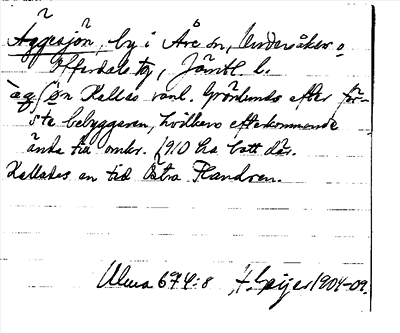 Äggesjön, by i Åre sn, Undersåker o
Offerdals tg, Jämtl. l.
Kallas vanl. Grönlunds efter för-
sta bebyggaren, hvilkens efterkommande
ända till omkr. 1910 ha bott där.
Kallades en tid Östra Flandern.
Ulma 674:8 H. Geijer 1904-09.